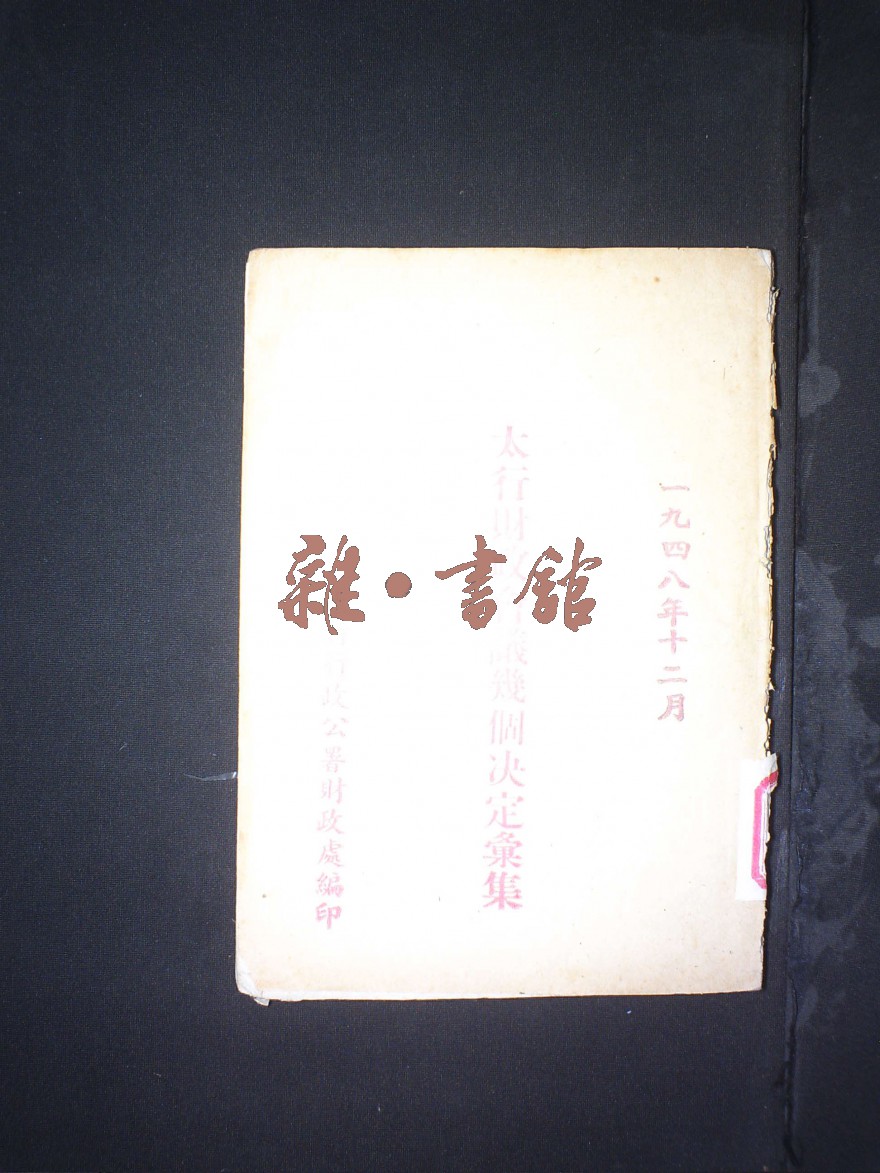 一九四八年十二月
太行財政 議幾個决定彙集
行政公署財政處編印
雜·書館